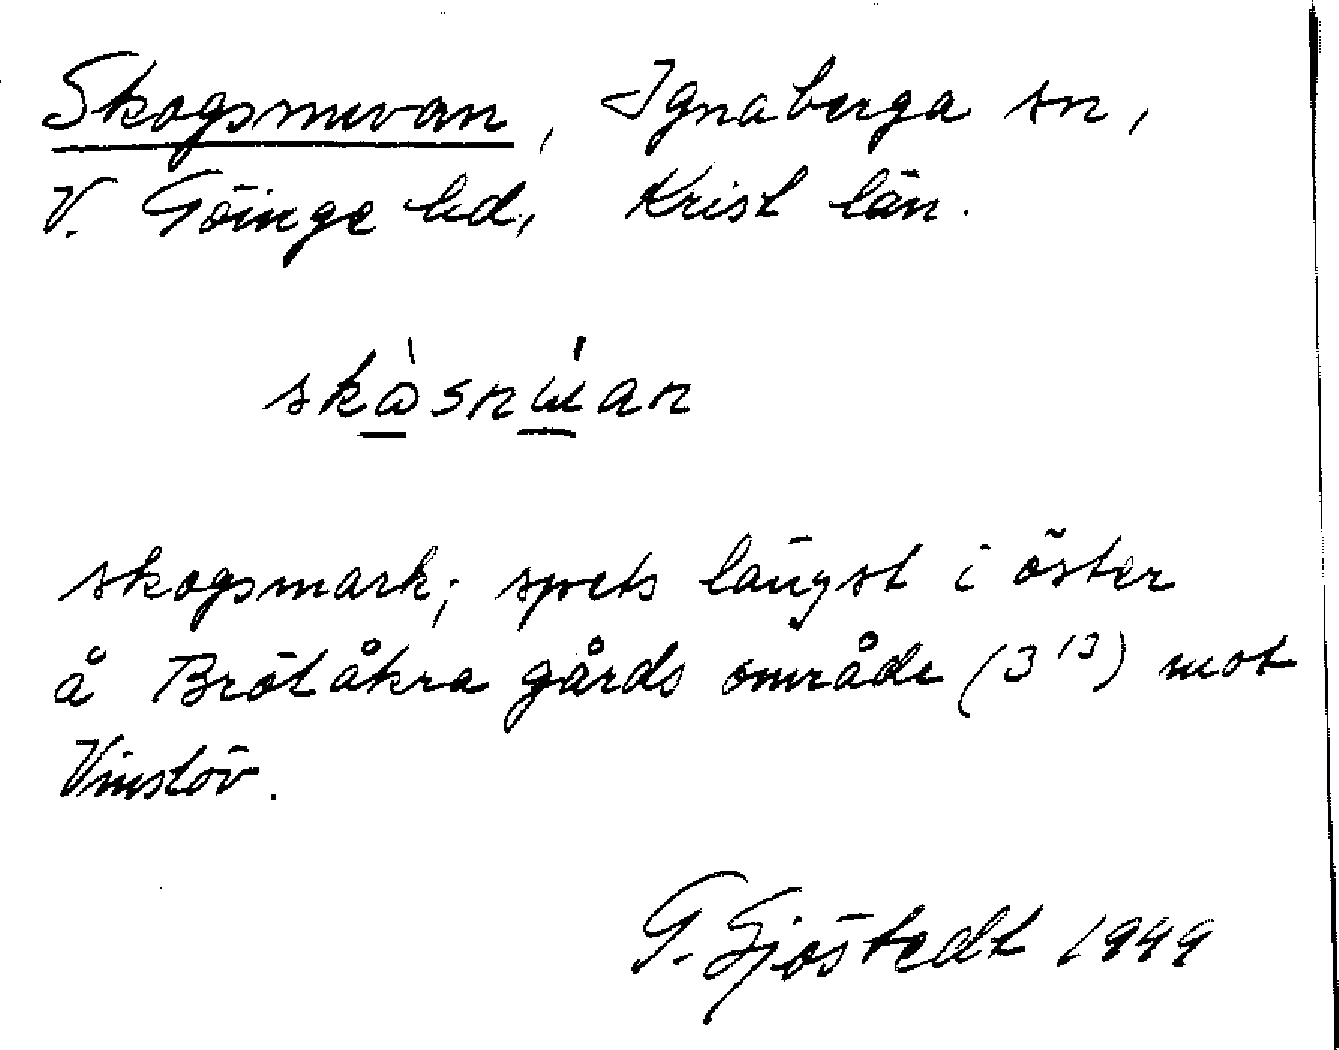 Skogsnuvan, Ignaberga sn,
V. Göinge hd, Krist län.
skogsmark; spets längst i öster
å Brötåkra gårds område (3¹³) mot
Vinslöv.
G. Sjöstedt 1949